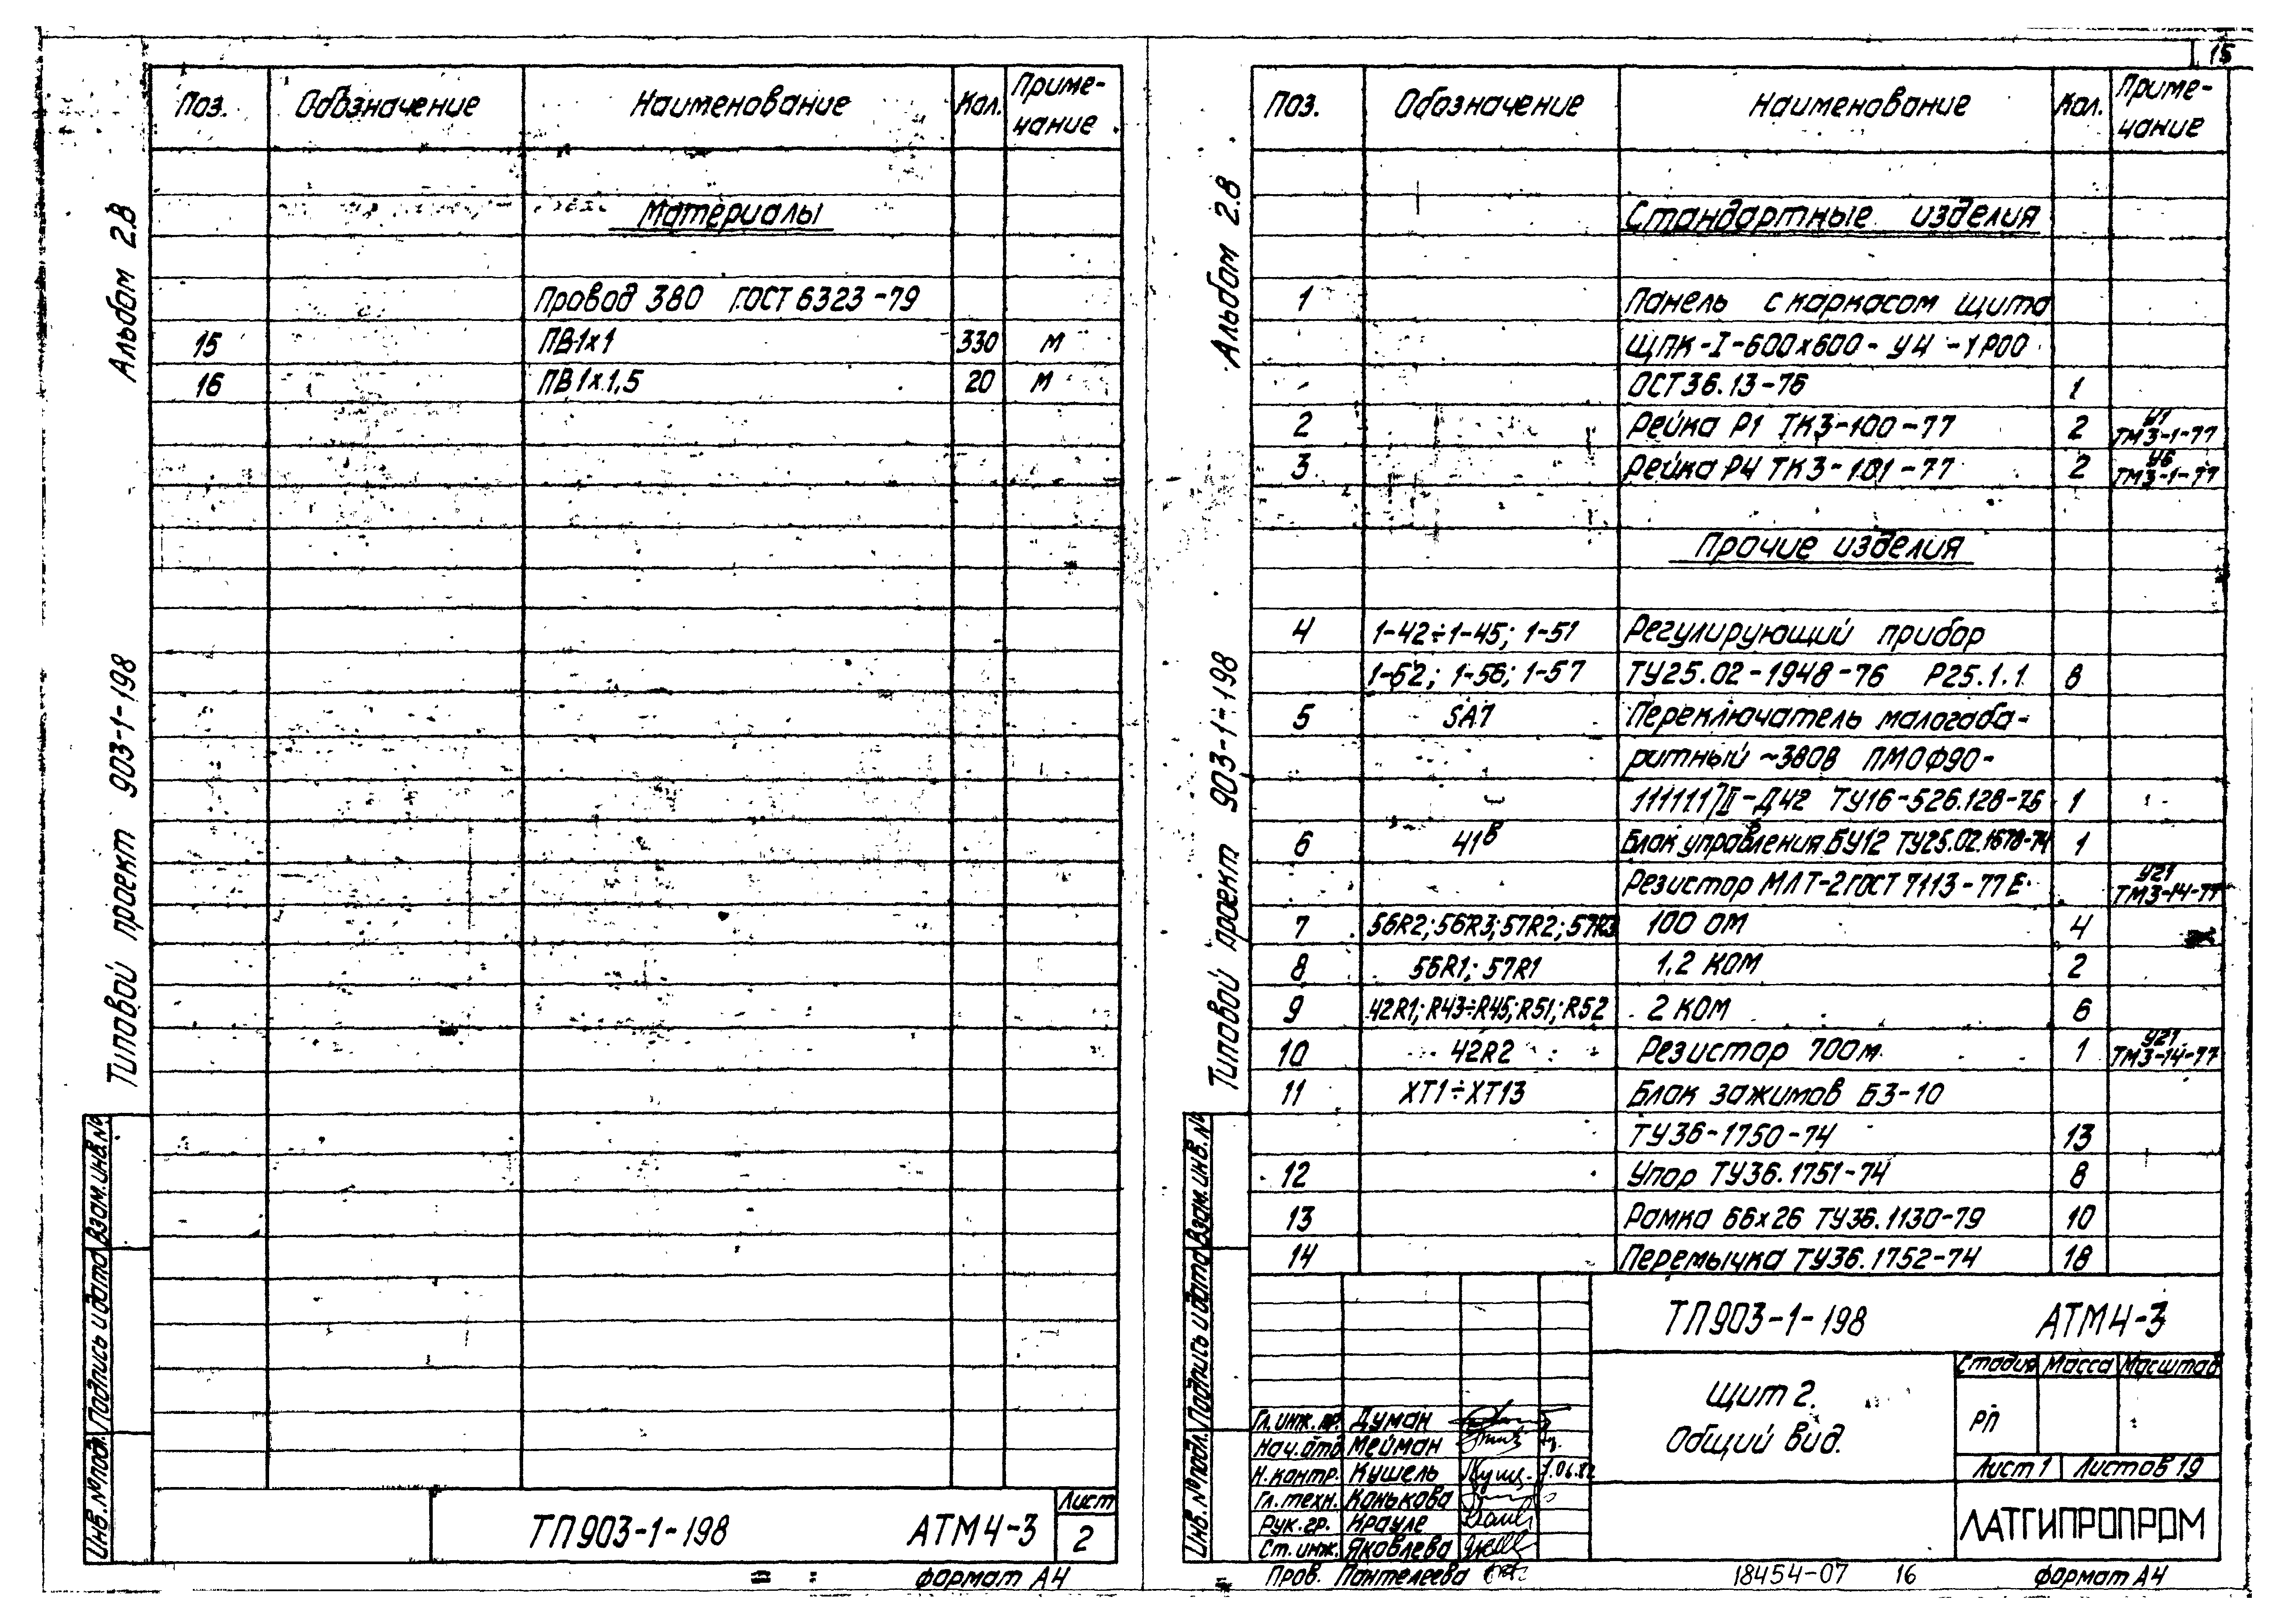 Поз. Обозначение Наименование Кол. Приме-
чание
Материалы
Провод 380 ГОСТ 6323-79
15 ПВ1х1 330 м
16 ПВ1х1,5 20 м
Альбом 2.В
Типовой проект 903-1-198
Взам.инв.№
Подпись и дата
Инв.№подл.
ТП903-1-198 АТМ4-3
Лист
2
формат А4
15
Поз. Обозначение Наименование Кол. Приме-
чание
Стандартные изделия
1 Панель с каркасом щита
ЩПК-I-600х600-У4-1Р00
ОСТ36.13-76 1
2 Рейка Р1 ТК3-100-77 2 У1
ТМ3-1-77
3 Рейка Р4 ТК3-101-77 2 У6
ТМ3-1-77
Прочие изделия
4 1-42÷1-45; 1-51 Регулирующий прибор
1-52; 1-56; 1-57 ТУ25.02-1948-76 Р25.1.1 8
5 SA7 Переключатель малогаба-
ритный ~380В ПМОФ90-
111111/II-Д42 ТУ16-526.128-76 1
6 41в Блок управления БУ12 ТУ25.02.1678-74 1
Резистор МЛТ-2ГОСТ 7113-77Е У21
ТМ3-14-77
7 56R2; 56R3; 57R2; 57R3 100 ОМ 4
8 56R1; 57R1 1,2 КОМ 2
9 42R1; R43÷R45; R51; R52 2 КОМ 6
10 42R2 Резистор 70Ом 1 У21
ТМ3-14-77
11 ХТ1÷ХТ13 Блок зажимов БЗ-10
ТУ36-1750-74 13
12 Упор ТУ36.1751-74 8
13 Рамка 66х26 ТУ36.1130-79 10
14 Перемычка ТУ36.1752-74 18
Альбом 2.В
Типовой проект 903-1-198
Взам.инв.№
Подпись и дата
Инв.№подл.
ТП903-1-198 АТМ4-3
Щит 2.
Общий вид.
Стадия Масса Масштаб
РП
Лист 1 Листов 19
ЛАТГИПРОПРОМ
Гл.инж.пр. Думан
Нач.отд Мейман
Н.контр. Кушель
Гл.техн. Канькова
Рук.гр. Крауле
Ст.инж. Яковлева
Пров. Пантелеева
18454-07 16
формат А4